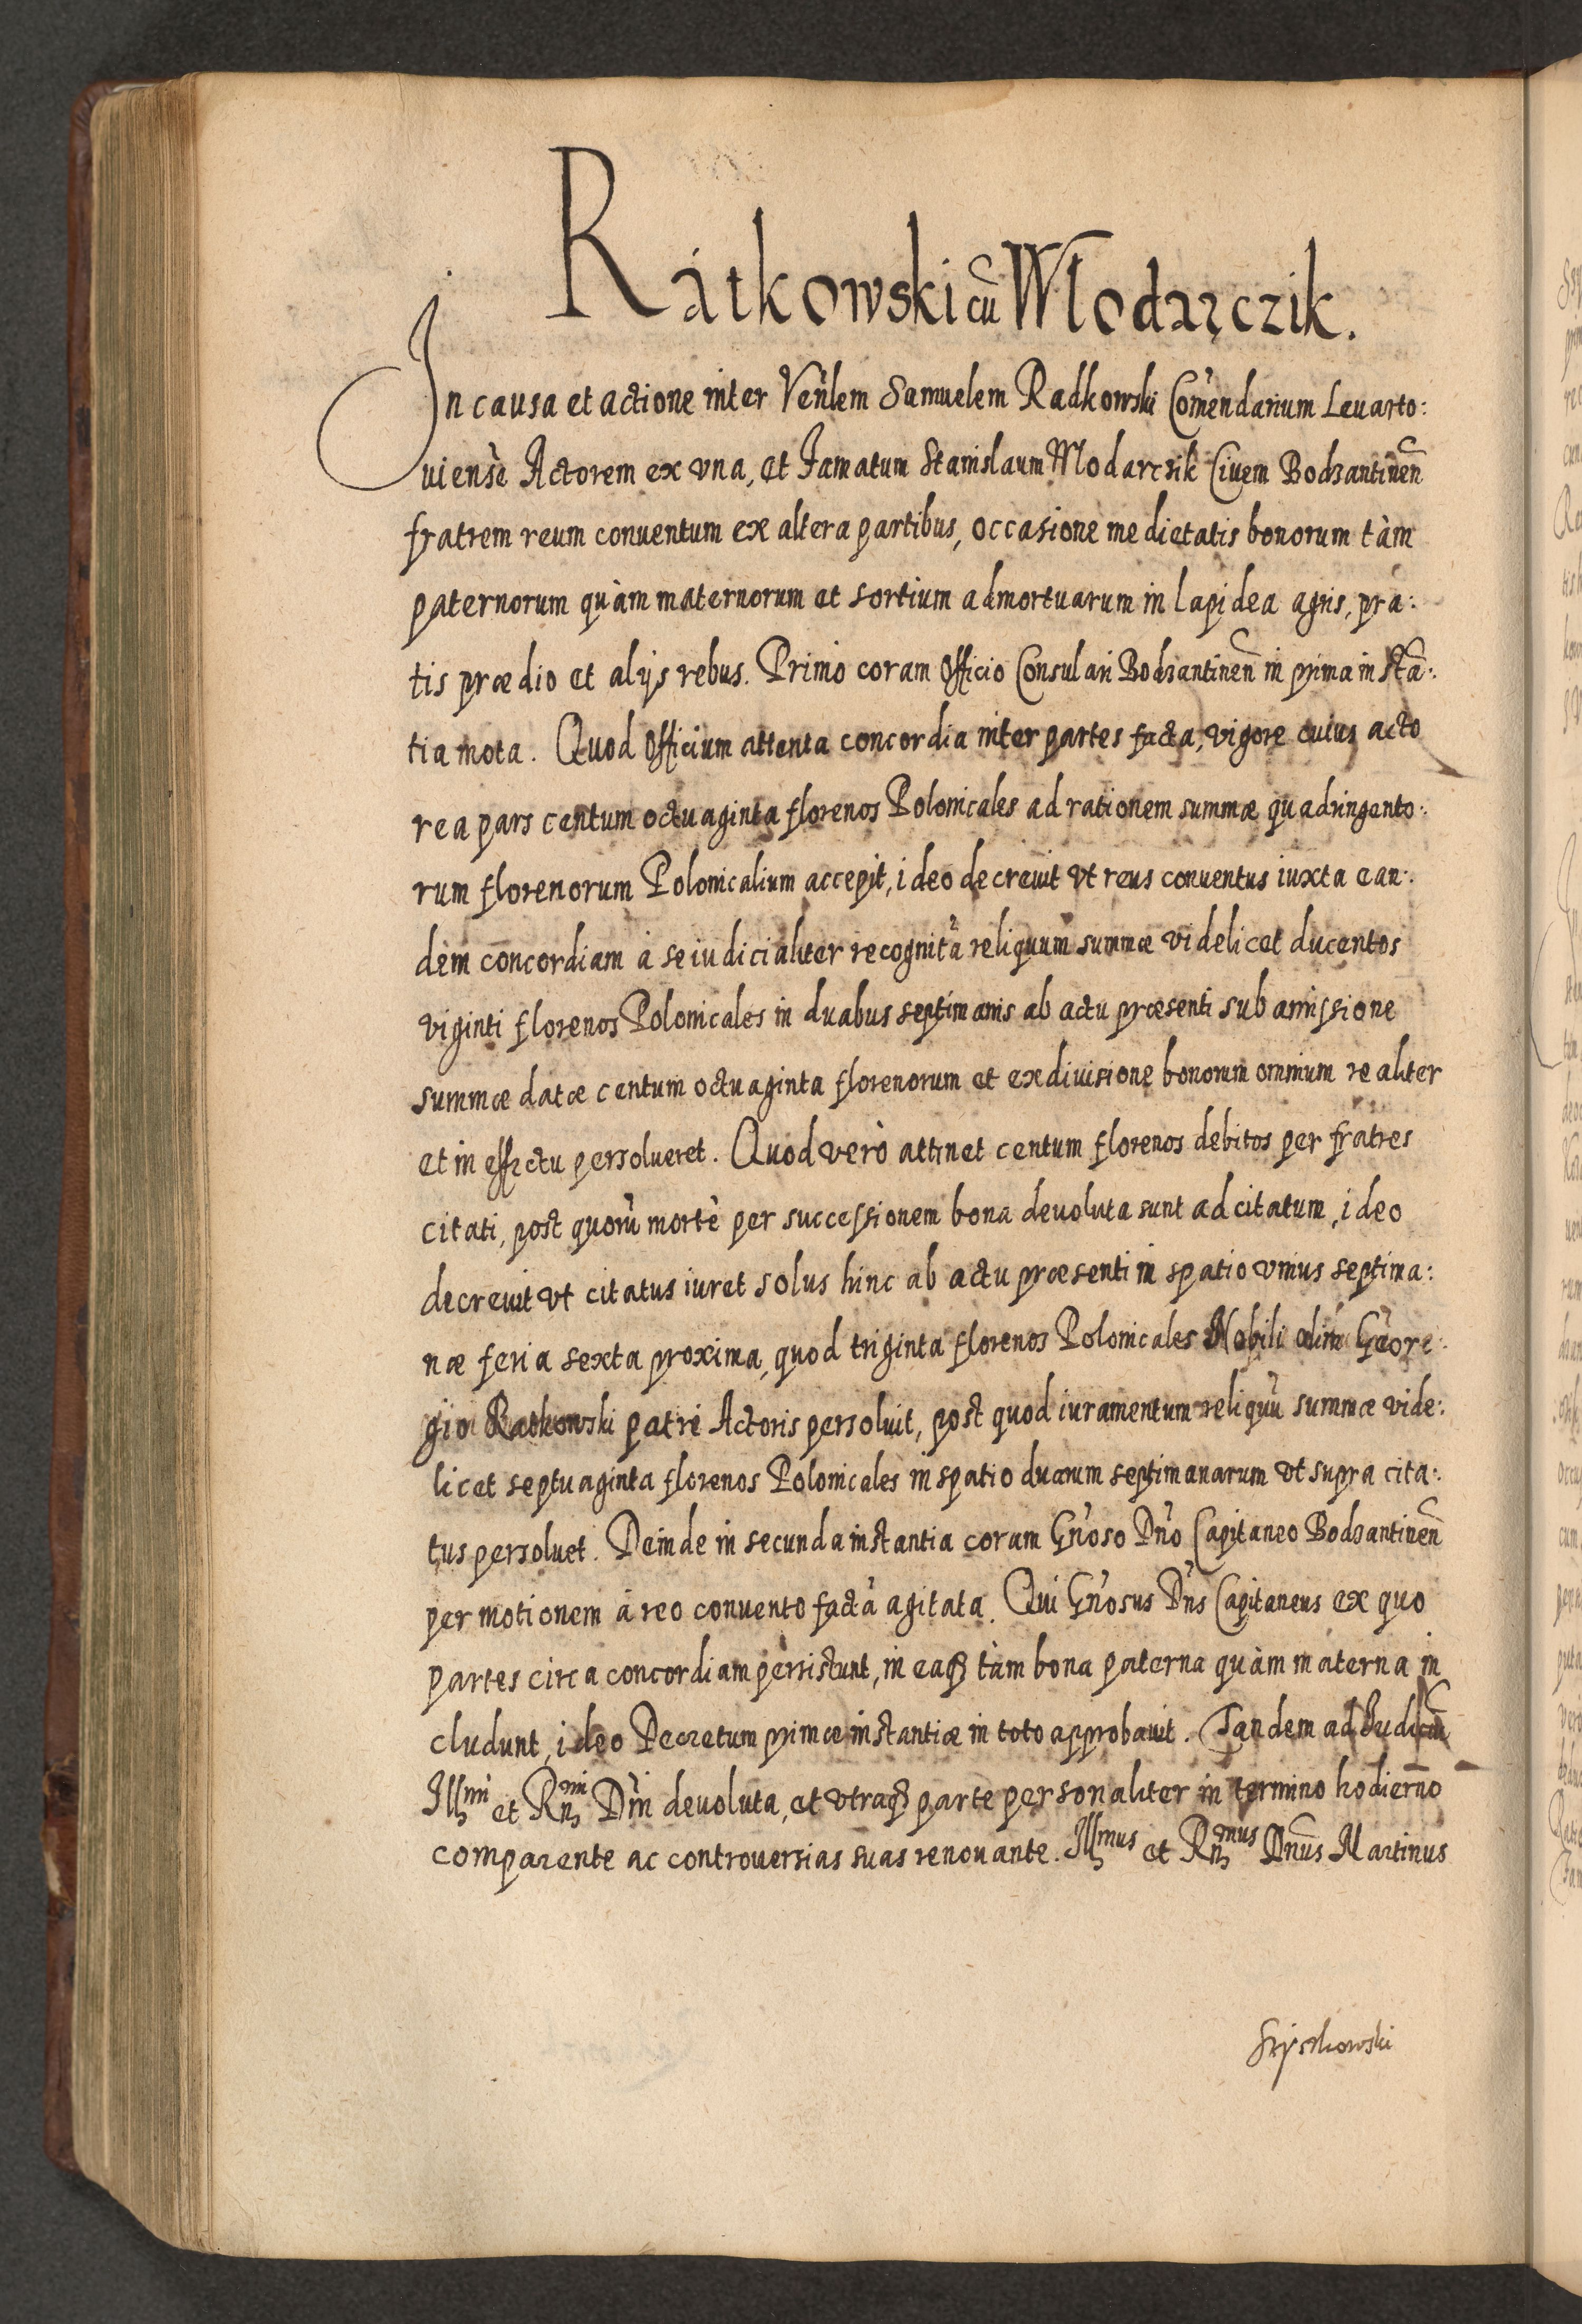 Rátkowski cū Wlodarczik.
In causa et actione inter Ven̉lem Samuelem Radkowski Com̉endarium Leuarto:
uiensẻ Actorem ex vna, et Famatum Stanislaum Wlodarcsik Ciuem Bodzantinen̄
fratrem reum conuentum ex altera partibus, occasione medietatis bonorum tàm
paternorum quàm maternorum et sortium admortuarum in lapidea agris, pra:
tis prædio et alijs rebus. Primo coram Officio Consulari Bodzantinen̄ in prima instā:
tia mota. Quod Officium attenta concordia inter partes facta, vigore cuius acto
rea pars centum octuaginta florenos Polonicales ad rationem summæ quadringento:
rum florenorum Polonicalium accepit, ideo decreuit vt reus conuentus iuxta ean:
dem concordiam à se iudicialiter recognitả reliquum summæ videlicet ducentos
viginti florenos Polonicales in duabus septimanis ab actu præsenti sub amissione
summæ datæ centum octuaginta florenorum et ex diuisione bonorum omnium realiter
et in effectu persolueret. Quod verò attinet centum florenos debitos per fratres
citati, post quorủ mortẻ per successionem bona deuoluta sunt ad citatum, ideo
decreuit vt citatus iuret solus hinc ab actu præsenti in spatio vnius septima:
næ feria sexta proxima, quod triginta florenos Polonicales Nobili olim Geore:
gio Ratkowski patri Actoris persoluit, post quod iuramentum reliquủ summæ vide:
licet septuaginta florenos Polonicales in spatio duarum septimanarum vt supra cita:
tus persoluet. Deinde in secunda instantia coram Gn̉oso Dn̉o Capitaneo Bodzantinen̄
per motionem à reo conuento factả agitata. Qui Gn̉osus Dn̉s Capitaneus ex quo
partes circa concordiam persistunt, in eaq₃ tàm bona paterna quàm materna in
cludunt, ideo Decretum primæ instantiæ in toto approbauit. Tandem ad Iudiciū
Illmi et Rnmi Dn̉i deuoluta, et vtraq₃ parte personaliter in termino hodierno
comparente ac controuersias suas renouante. Illmus et Rnmus Dnūs Martinus
Szyszkowski